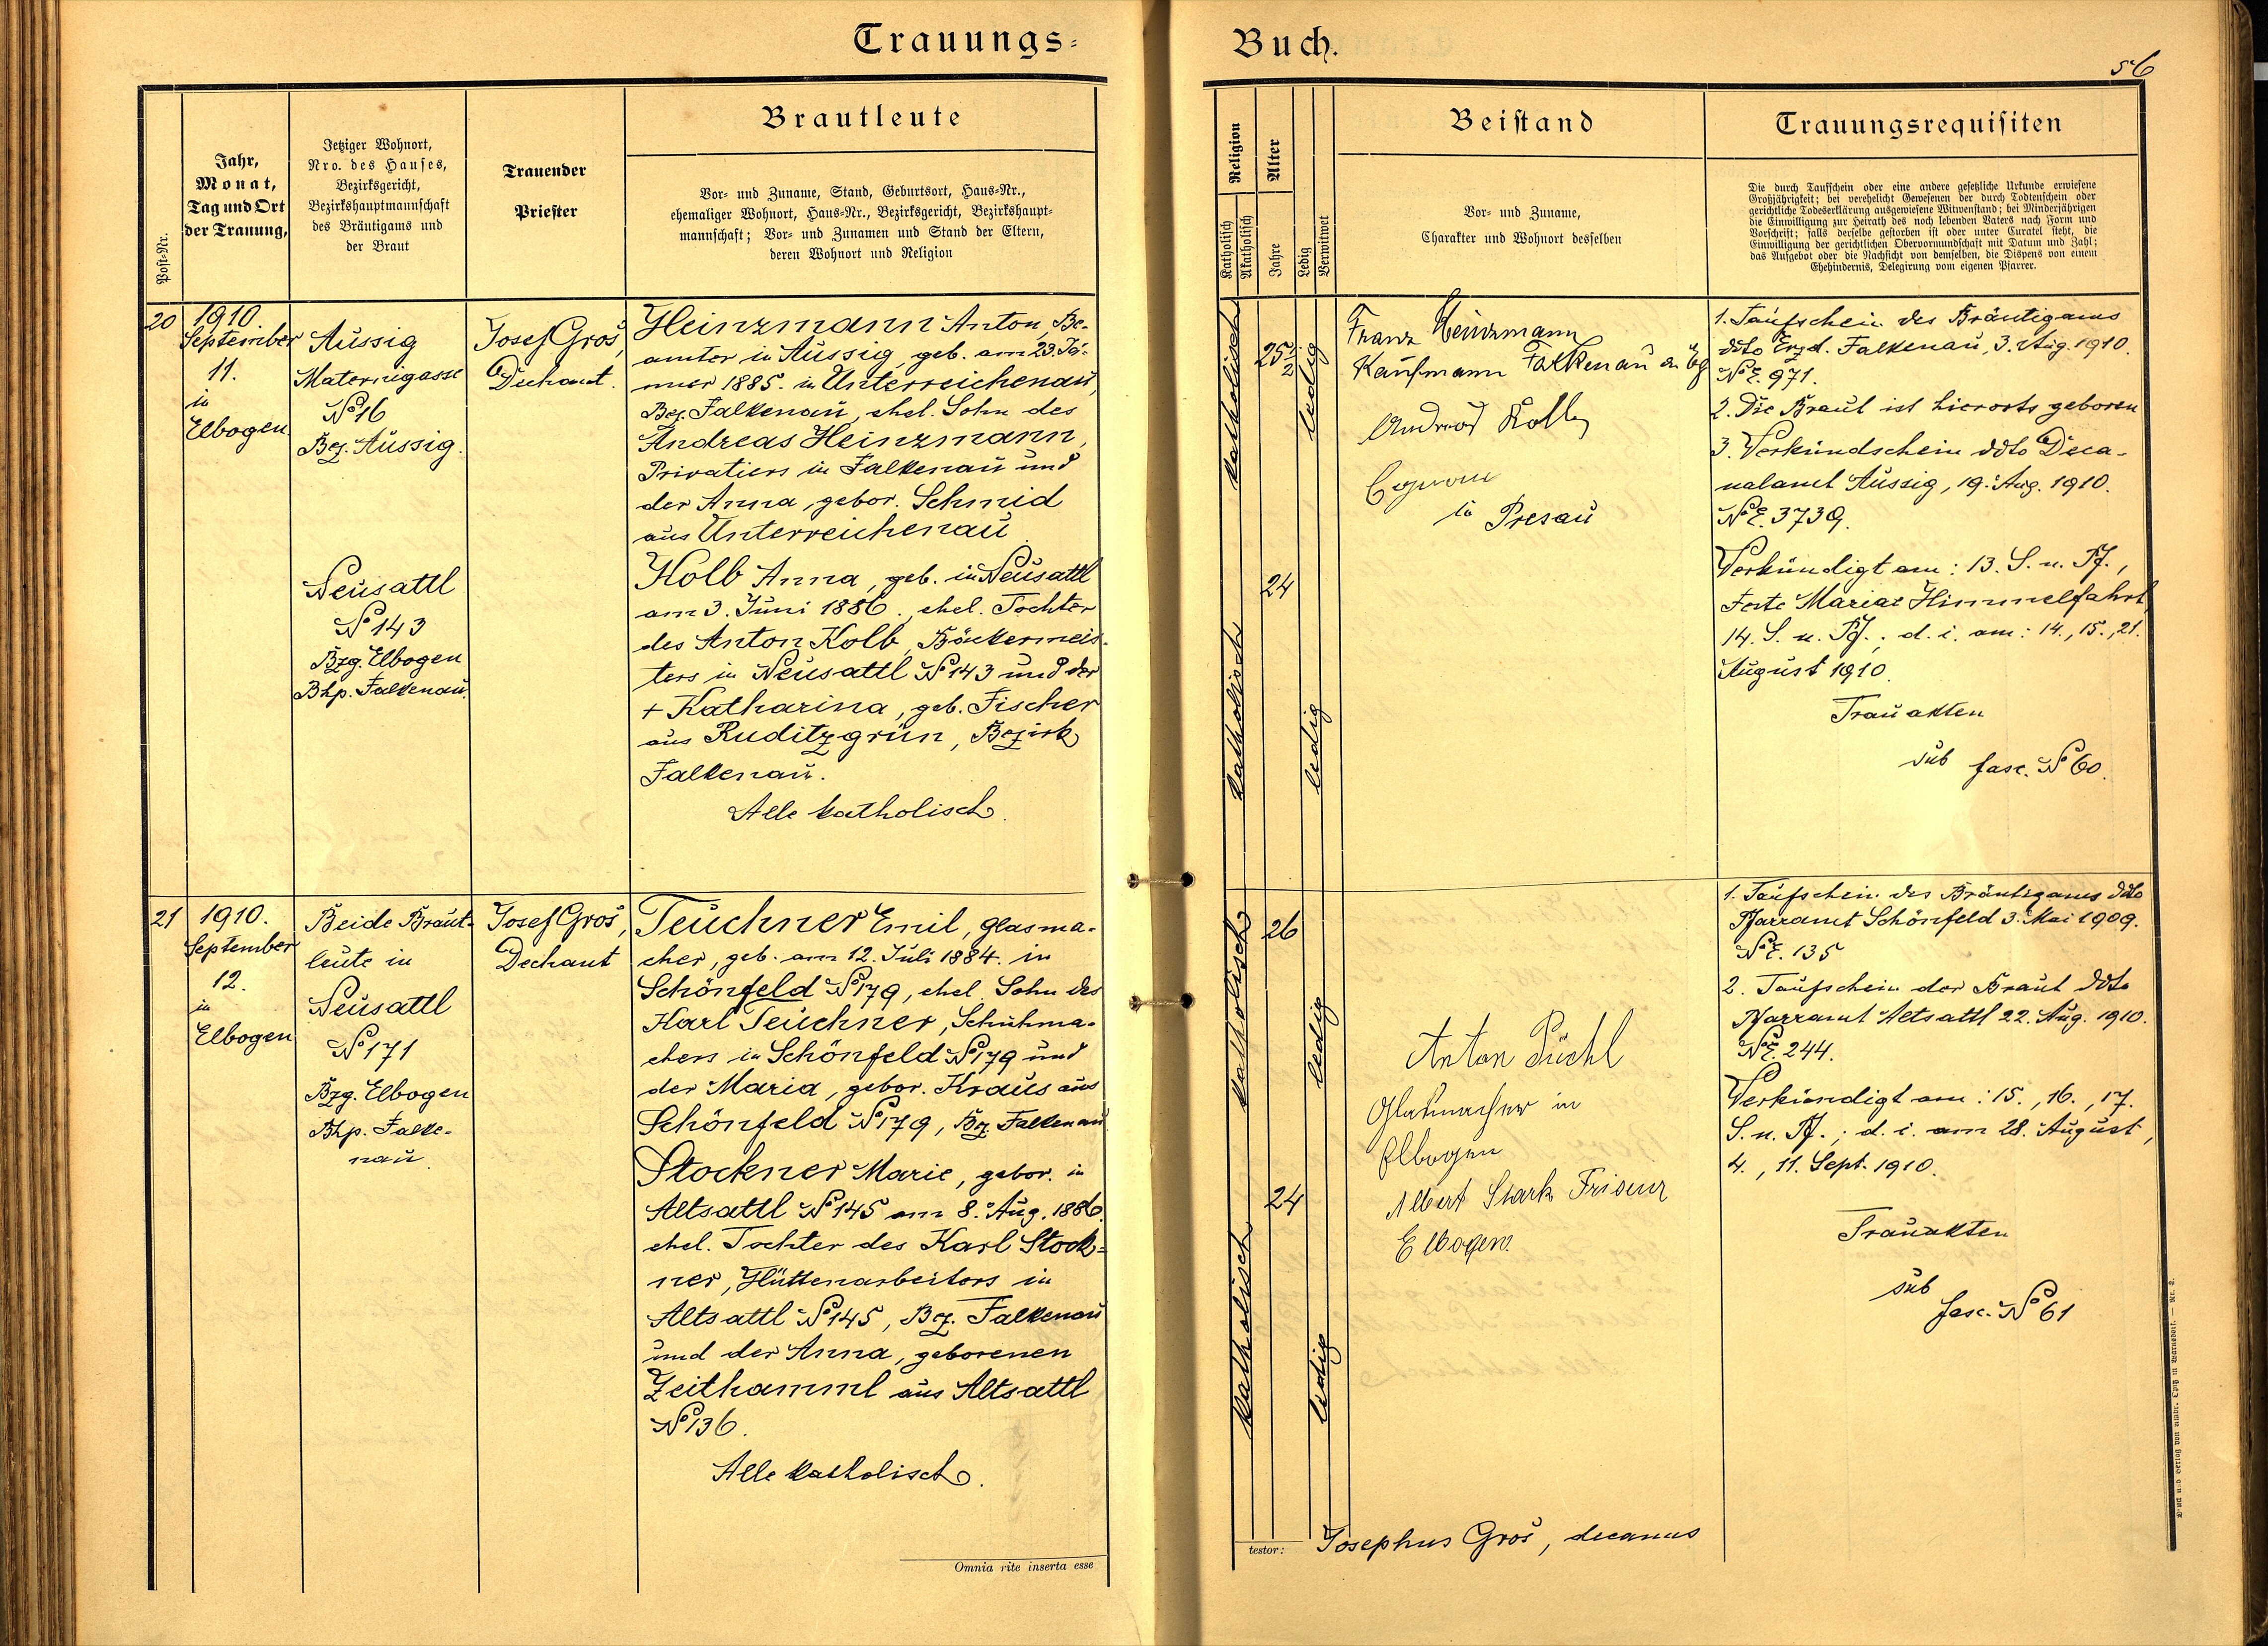 Trauungs-
Buch.
56
Post-Nr.
Jahr,
Monat,
Tag und Ort
der Trauung,
Jetziger Wohnort,
Nro. des Hauses,
Bezirksgericht,
Bezirkshauptmannschaft
des Bräutigams und
der Braut
Trauender
Priester
Brautleute
Vor- und Zuname, Stand, Geburtsort, Haus-Nr.,
ehemaliger Wohnort, Haus-Nr., Bezirksgericht, Bezirkshaupt-
mannschaft; Vor- und Zunamen und Stand der Eltern,
deren Wohnort und Religion
Religion
Katholisch
Akatholisch
Alter
Jahre
Ledig
Verwitwet
Beistand
Vor- und Zuname,
Charakter und Wohnort desselben
Trauungsrequisiten
Die durch Taufschein oder eine andere gesetzliche Urkunde erwiesene
Großjährigkeit; bei verehelicht Gewesenen der durch Todtenschein oder
gerichtliche Todeserklärung ausgewiesene Witwenstand; bei Minderjährigen
die Einwilligung zur Heirath des noch lebenden Vaters nach Form und
Vorschrift; falls derselbe gestorben ist oder unter Curatel steht, die
Einwilligung der gerichtlichen Obervormundschaft mit Datum und Zahl;
das Aufgebot oder die Nachsicht von demselben, die Dispens von einem
Ehehindernis, Delegirung vom eigenen Pfarrer.
20
1910
September
11.
in
Elbogen
Aussig
Maternigasse
№ 16
Bez. Aussig.
Neusattl
№ 143
Bzg. Elbogen
Bhp. Falkenau.
Josef Groš,
Dechant.
Heinzmann Anton, Be-
amter in Aussig, geb. am 23. Jä-
nner 1885. in Unterreichenau,
Bez. Falkenau, ehel. Sohn des
Andreas Heinzmann,
Privatiers in Falkenau und
der Anna, gebor. Schmid
aus Unterreichenau.
Kolb Anna, geb. in Neusattl
am 3. Juni 1886, ehel. Tochter
des Anton Kolb, Bäckermeis-
ters in Neusattl № 143 und der
+ Katharina, geb. Fischer
aus Ruditzgrün, Bezirk
Falkenau.
Alle katholisch.
katholisch
25 1/2
ledig
katholisch
24
ledig
Franz Heinzmann
Kaufmann Falkenau a Eg
Andreas
in
1. Taufschein des Bräutigams
ddto Erzd. Falkenau, 3. Aug. 1910.
№ E. 971.
2. Die Braut ist hierorts geboren
3. Verkündschein ddto Deca-
nalamt Aussig, 19. Aug. 1910.
№ E. 3739.
Verkündigt am: 13. S. n. Pf.,
Feste Mariae Himmelfahrt,
14. S. n. Pf.; d. i. am: 14., 15., 21.
August 1910.
Trauakten
sub fasc. № 60.
21
1910.
September
12.
in
Elbogen
Beide Braut-
leute in
Neusattl
№ 171
Bzg. Elbogen
Bhp. Falke-
nau.
Josef Groš,
Dechant
Teuchner Emil, Glasma-
cher, geb. am 12. Juli 1884. in
Schönfeld № 179, ehel. Sohn des
Karl Teuchner, Schuhma-
chers in Schönfeld № 179 und
der Maria, gebor. Kraus aus
Schönfeld № 179, Bz. Falkenau
Stockner Marie, gebor. in
Altsattl № 145 am 8. Aug. 1886.
ehel. Tochter des Karl Stock-
ner, Hüttenarbeiters in
Altsattl № 145, Bez. Falkenau
und der Anna, geborenen
Zeithamml aus Altsattl
№ 136.
Alle katholisch.
katholisch
26
ledig
katholisch
24
ledig
Anton Püchl
Glasmacher in
Elbogen
Albert Stark Friseur
Elbogen.
1. Taufschein des Bräutigams ddto
Pfarramt Schönfeld 3. Mai 1909.
№ E. 135
2. Taufschein der Braut ddto
Pfarramt Altsattl 22. Aug. 1910.
№ E. 244.
Verkündigt am: 15., 16., 17.
S. n. Pf.; d. i. am 28. August,
4., 11. Sept. 1910.
Trauakten
sub
fasc. № 61
Omnia rite inserta esse
testor: Josephus Groš, decanus